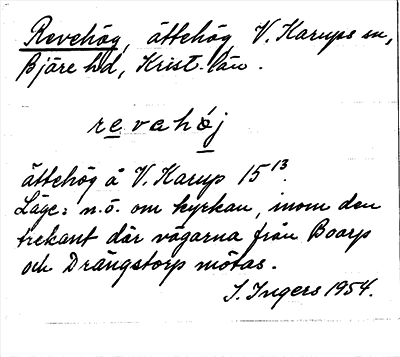 Revehög, ättehög, V. Karups sn,
Bjäre hd, Krist. län.
revahøj
ättehög å V. Karup 15¹³.
Läge: n.ö. om kyrkan, inom den
trekant där vägarna från Boarp
och Drängstorp mötas.
I. Ingers 1954.